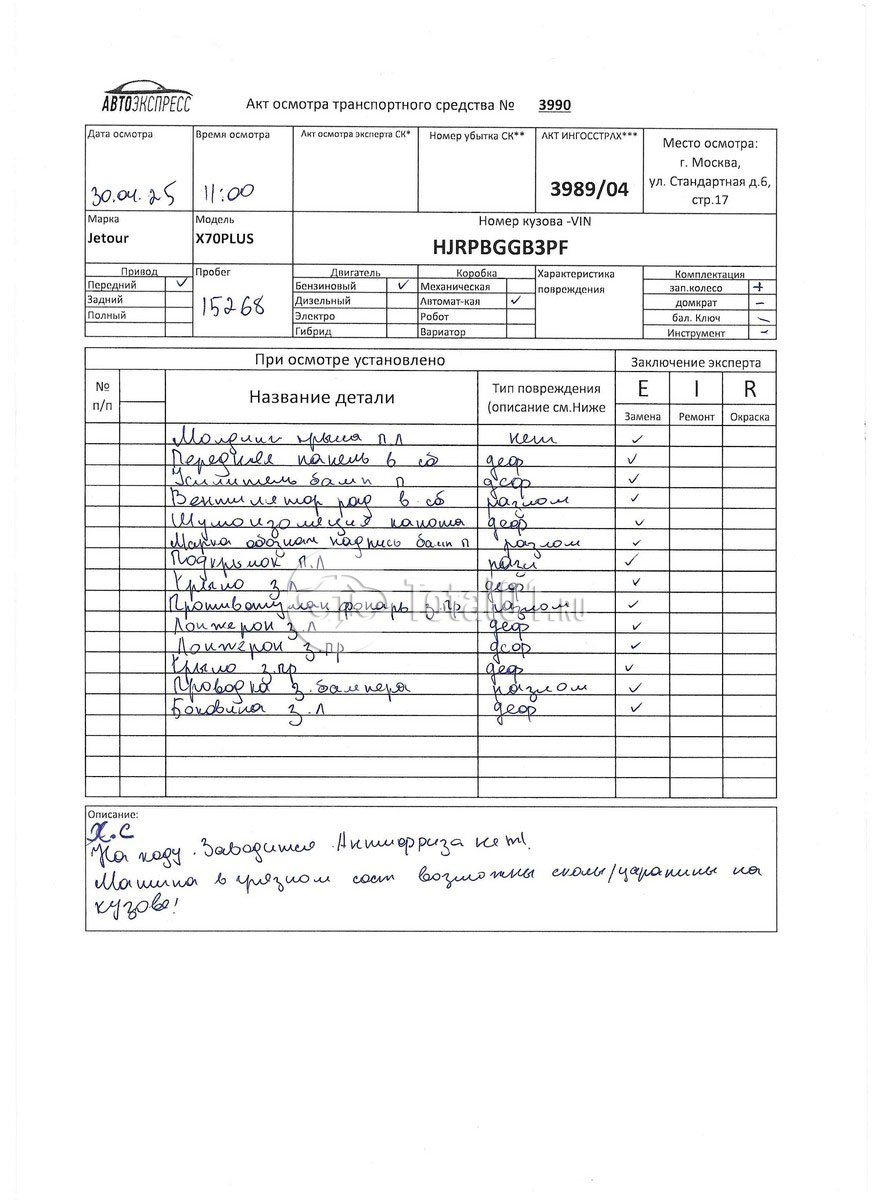 АВТОЭКСПРЕСС
Акт осмотра транспортного средства № 3990
Дата осмотра
Время осмотра
Акт осмотра эксперта СК*
Номер убытка СК**
АКТ ИНГОССТРАХ***
Место осмотра:
г. Москва,
ул. Стандартная д.6,
стр.17
30.04.25
11:00
3989/04
Марка
Jetour
Модель
X70PLUS
Номер кузова -VIN
HJRPBGGB3PF
Привод
Передний ✓
Задний
Полный
Пробег
15268
Двигатель
Бензиновый ✓
Дизельный
Электро
Гибрид
Коробка
Механическая
Автомат-кая ✓
Робот
Вариатор
Характеристика
повреждения
Комплектация
зап.колесо +
домкрат –
бал. Ключ –
Инструмент –
При осмотре установлено
Заключение эксперта
№
п/п
Название детали
Тип повреждения
(описание см.Ниже
E I R
Замена Ремонт Окраска
Молдинг крыла п л нет ✓
Передняя панель в сб деф ✓
Усилитель бамп п деф ✓
Вентилятор рад в сб разлом ✓
Шумоизоляция капота деф ✓
Марка обознач надпись бамп п разлом ✓
Подкрылок п.л ✓
Крыло з.л деф ✓
Противотуман фонарь з.пр разлом ✓
Лонжерон з.л деф ✓
Лонжерон з.пр деф ✓
Крыло з.пр деф ✓
Проводка з.бампера разлом ✓
Боковина з.л деф ✓
Total01.RU
Описание:
Х.С
На ходу. Заводится. Антифриза нет!
Машина в грязном сост возможны сколы/царапины на
кузове!